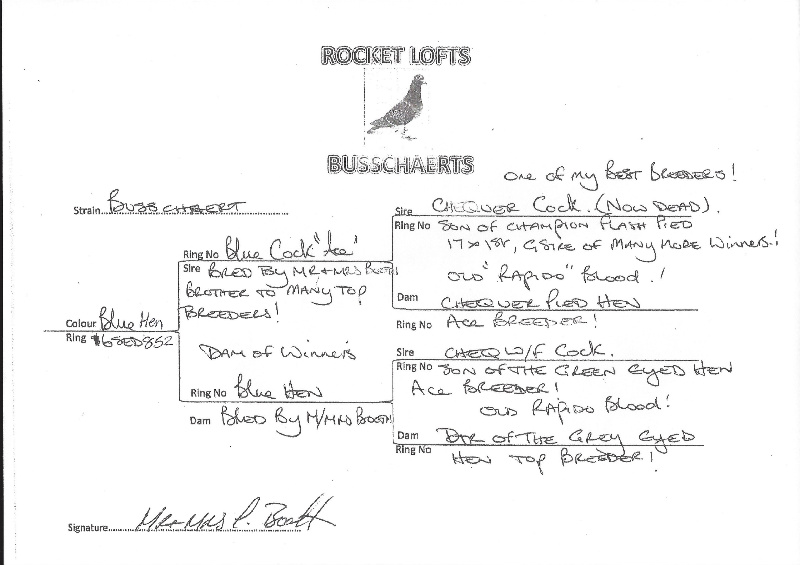 ROCKET LOFTS
BUSSCHAERTS
One of my Best Breeders!
Strain BUSSCHAERT
Sire CHEQUER COCK. (NOW DEAD).
Ring No SON OF CHAMPION FLASH PIED
17 x 1st, G SIRE OF MANY MORE WINNERS!
OLD "RAPIDO" Blood!
Dam CHEQUER PIED HEN
Ring No Ace BREEDER!
Ring No Blue Cock "Ace"
Sire BRED By MR + MRS BOOTH
BROTHER TO MANY TOP
BREEDERS!
Colour Blue Hen
Ring 16SED852
DAM OF WINNERS
Ring No Blue HEN
Dam BRED By M/MRS BOOTH
Sire CHEQ W/F COCK.
Ring No SON OF THE GREEN EYED HEN
Ace BREEDER!
OLD RAPIDO Blood!
Dam DTR OF THE GREY EYED
Ring No HEN TOP BREEDER!
Signature MR + MRS P. Booth